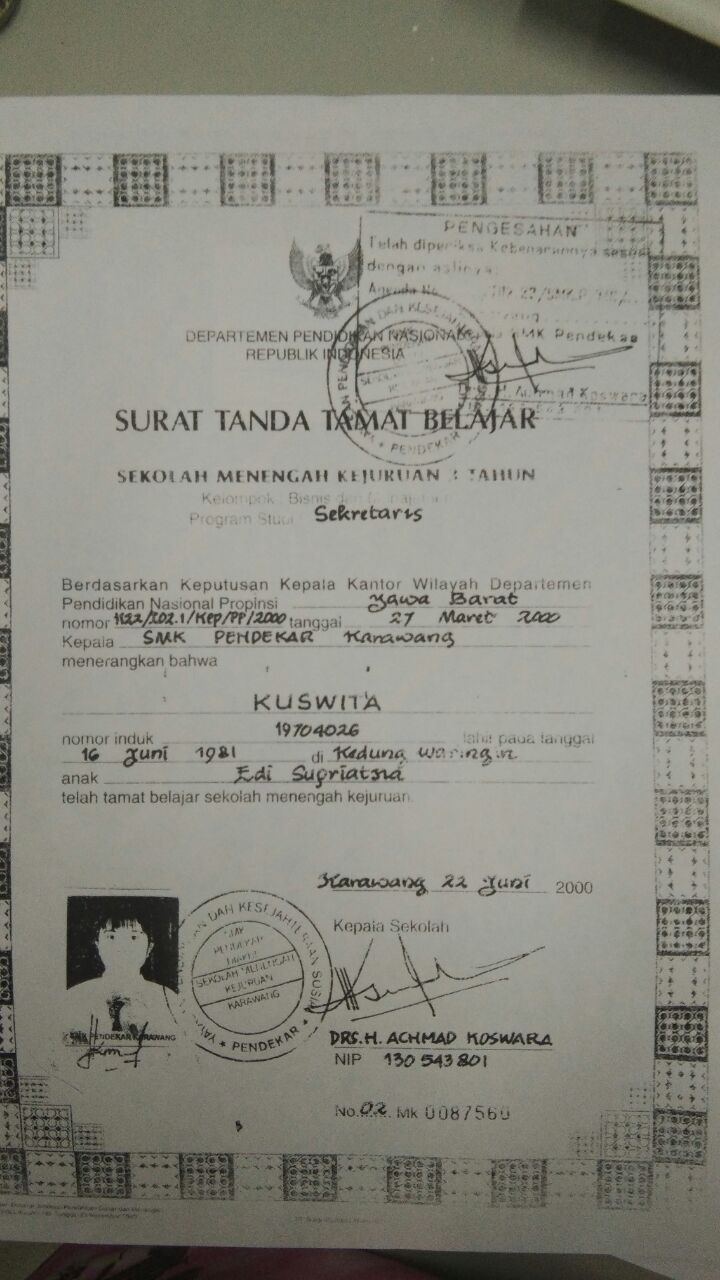 PENGESAHAN
Telah diperiksa Kebenarannya sesuai
dengan aslinya
Agenda No.
SMK Pendekar
H. Achmad Koswara
DEPARTEMEN PENDIDIKAN NASIONAL
REPUBLIK INDONESIA
DAN KESEJAH
PENDEKAR
SURAT TANDA TAMAT BELAJAR
SEKOLAH MENENGAH KEJURUAN 3 TAHUN
Kelompok : Bisnis dan
Program Studi Sekretaris
Berdasarkan Keputusan Kepala Kantor Wilayah Departemen
Pendidikan Nasional Propinsi Jawa Barat
nomor 1122/I02.1/Kep/PP/2000 tanggal 27 Maret 2000
Kepala SMK PENDEKAR Karawang
menerangkan bahwa
KUSWITA
nomor induk 19704026 lahir pada tanggal
16 Juni 1981 di Kedung Waringin
anak Edi Supriatna
telah tamat belajar sekolah menengah kejuruan.
Karawang 22 Juni 2000
Kepala Sekolah
DAN KESEJAHTERAAN SOSIAL
SMK
PENDEKAR
SEKOLAH MENENGAH
KEJURUAN
KARAWANG
YAYASAN
PENDEKAR
SMK PENDEKAR KARAWANG
DRS.H. ACHMAD KOSWARA
NIP 130543801
No. 02 Mk 0087560